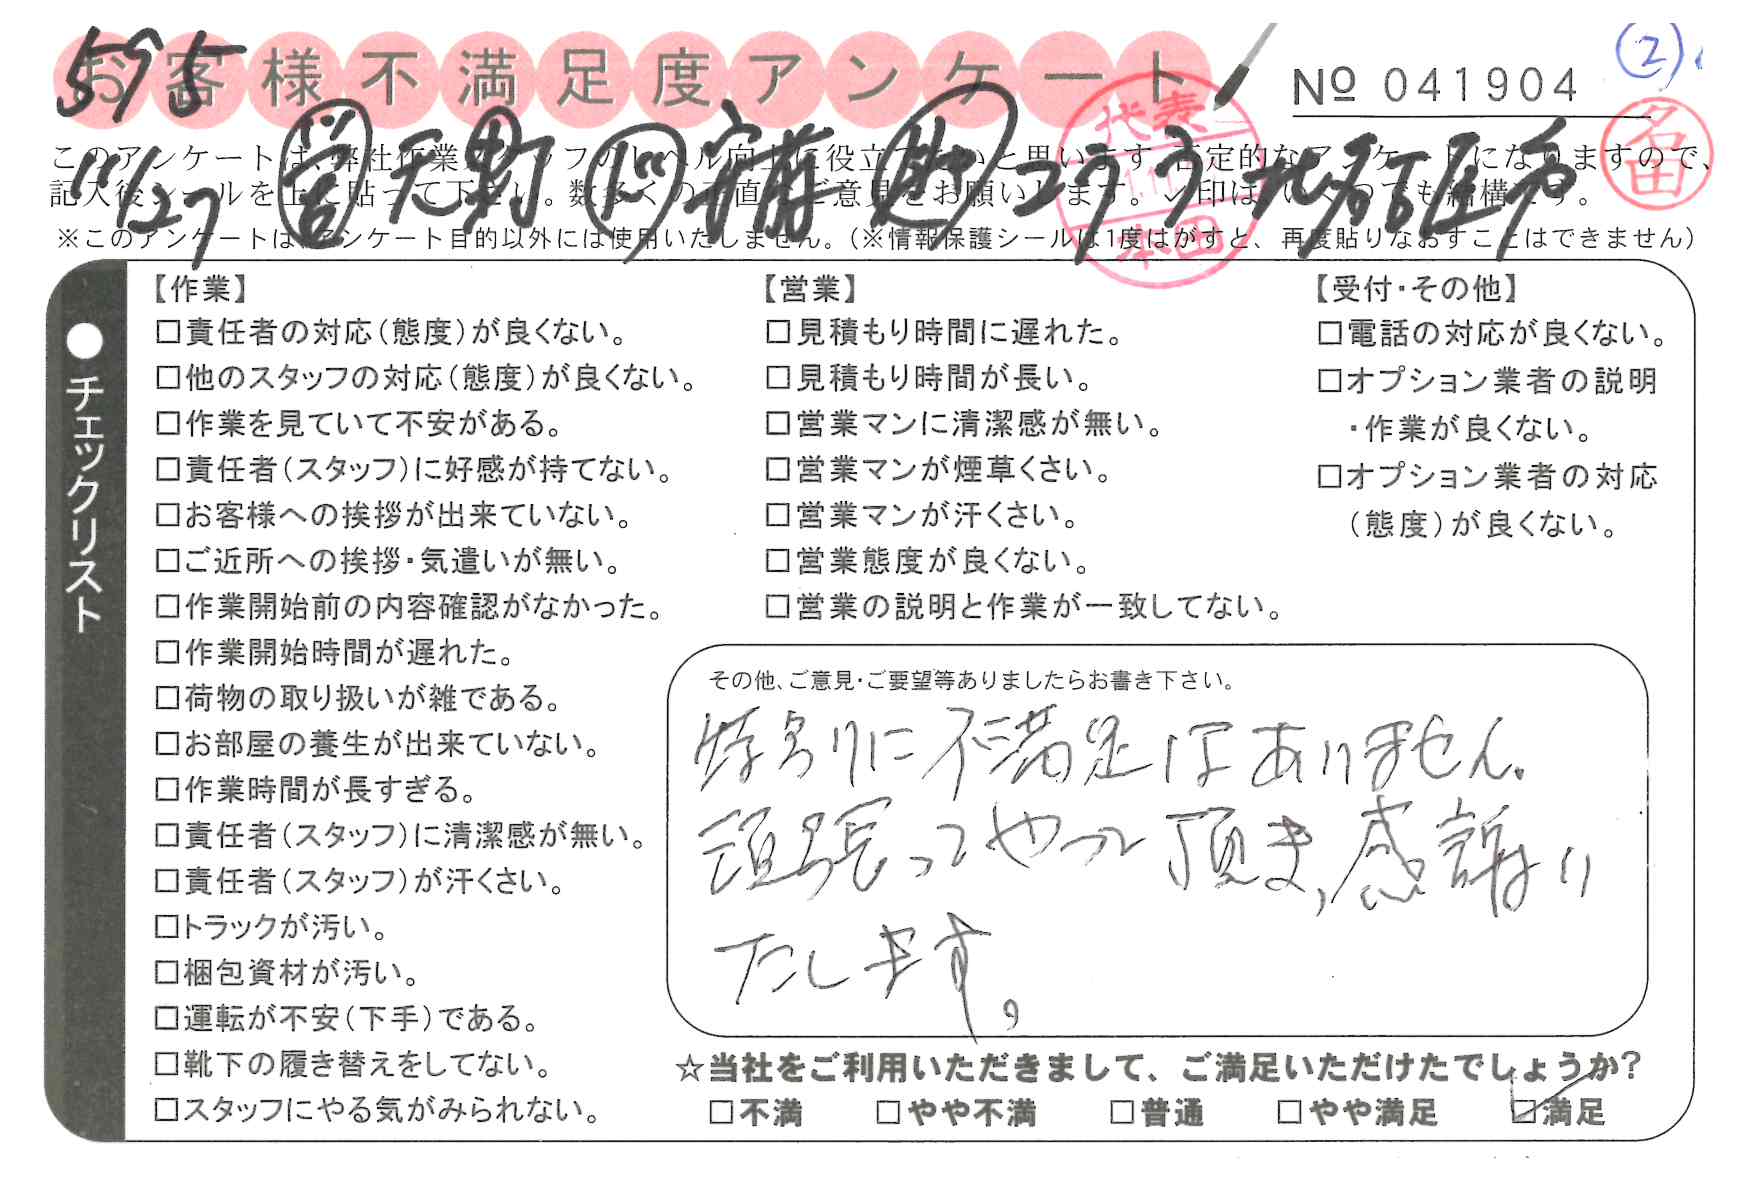 595
お客様不満足度アンケート
№ 041904
②
このアンケートは、弊社作業スタッフのレベル向上に役立てたいと思います。否定的なアンケートになりますので、
記入後シールを上に貼って下さい。数多くの正直なご意見をお願いします。✓印は、いくつでも結構です。
※このアンケートは、アンケート目的以外には使用いたしません。（※情報保護シールは1度はがすと、再度貼りなおすことはできません）
11/27 営 天野
代表
本田
名田
●チェックリスト
【作業】
□責任者の対応（態度）が良くない。
□他のスタッフの対応（態度）が良くない。
□作業を見ていて不安がある。
□責任者（スタッフ）に好感が持てない。
□お客様への挨拶が出来ていない。
□ご近所への挨拶・気遣いが無い。
□作業開始前の内容確認がなかった。
□作業開始時間が遅れた。
□荷物の取り扱いが雑である。
□お部屋の養生が出来ていない。
□作業時間が長すぎる。
□責任者（スタッフ）に清潔感が無い。
□責任者（スタッフ）が汗くさい。
□トラックが汚い。
□梱包資材が汚い。
□運転が不安（下手）である。
□靴下の履き替えをしてない。
□スタッフにやる気がみられない。
【営業】
□見積もり時間に遅れた。
□見積もり時間が長い。
□営業マンに清潔感が無い。
□営業マンが煙草くさい。
□営業マンが汗くさい。
□営業態度が良くない。
□営業の説明と作業が一致してない。
【受付・その他】
□電話の対応が良くない。
□オプション業者の説明
・作業が良くない。
□オプション業者の対応
（態度）が良くない。
その他、ご意見・ご要望等ありましたらお書き下さい。
特別に不満足はありません。
頑張ってやって頂き、感謝い
たします。
☆当社をご利用いただきまして、ご満足いただけたでしょうか？
□不満 □やや不満 □普通 □やや満足 ☑満足